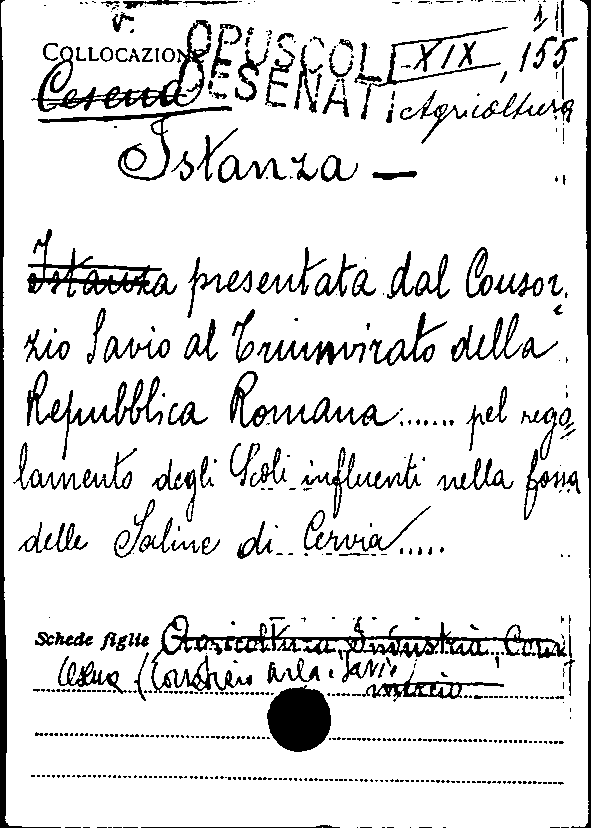 COLLOCAZIONE OPUSCOLI XIX, 155
Cesena CESENATI Agricoltura
Istanza —
Istanza presentata dal Consor-
zio Savio al Triumvirato della
Repubblica Romana....... pel rego=
lamento degli Scoli influenti nella fossa
delle Saline di Cervia.....
Schede figlie Agricoltura, Industria, Com
Cesena (Consorzio Savio)
mercio